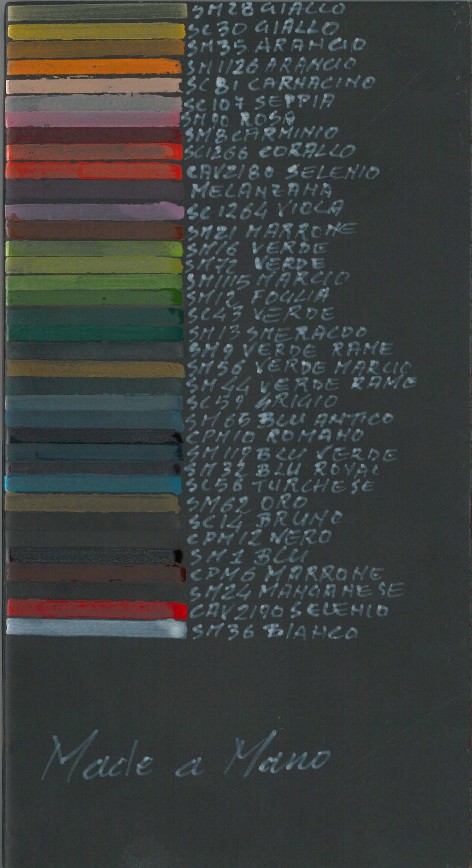 SM28 GIALLO
SC30 GIALLO
SM35 ARANCIO
SM1126 ARANCIO
SC81 CARNACINO
SC107 SEPPIA
SM90 ROSA
SM8 CARMINIO
SC1266 CORALLO
CAV2180 SELENIO
MELANZANA
SC1264 VIOLA
SM21 MARRONE
SM16 VERDE
SM72 VERDE
SM1115 MARCIO
SM12 FOGLIA
SC43 VERDE
SM13 SMERALDO
SM9 VERDE RAME
SM56 VERDE MARCIO
SM44 VERDE RAME
SC139 GRIGIO
SM65 BLU ANTICO
CPM10 ROMANO
SM119 BLU VERDE
SM32 BLU ROYAL
SC56 TURCHESE
SM62 ORO
SC14 BRUNO
CPM12 NERO
SM1 BLU
CPM6 MARRONE
SM24 MANGANESE
CAV2190 SELENIO
SM36 BIANCO
Made a Mano